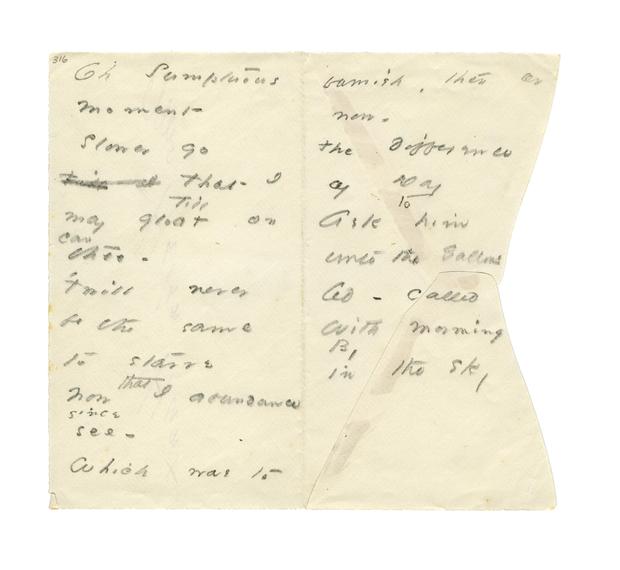 316
Oh Sumptuous
moment
Slower go
that I
Till
may gloat on
can
thee -
'twill never
be the same
to starve
now that I abundance
since
see -
Which was to
famish, then or
now -
the difference
of Day
to
Ask him
unto the Gallows
led - called
With morning
By
in the sky